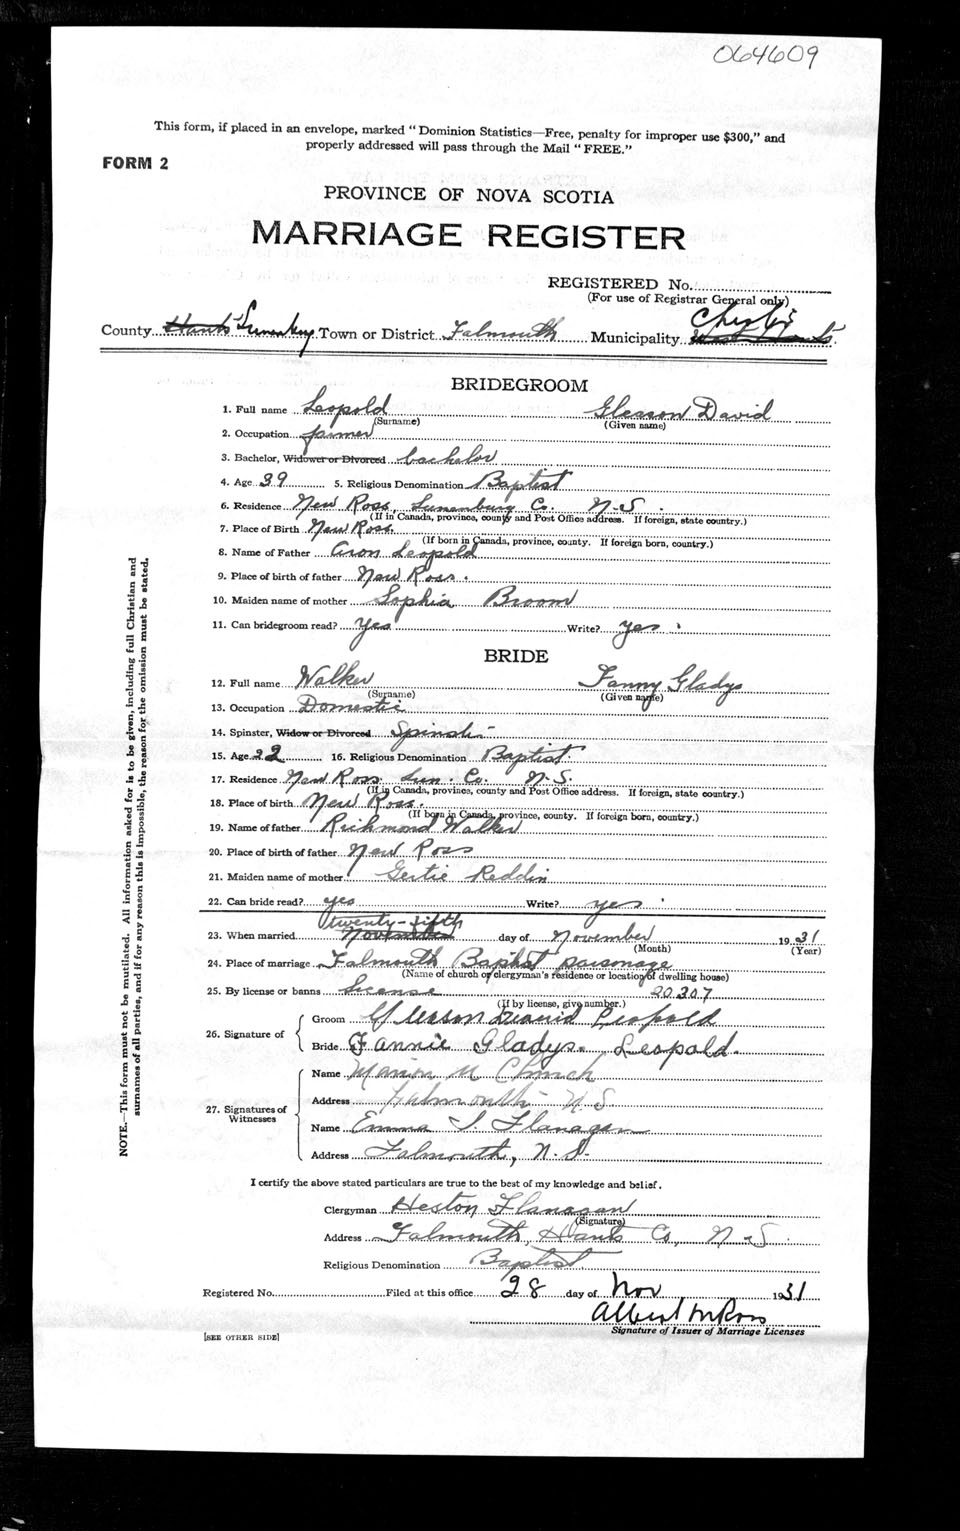 064609
This form, if placed in an envelope, marked "Dominion Statistics—Free, penalty for improper use $300," and
properly addressed will pass through the Mail "FREE."
FORM 2
PROVINCE OF NOVA SCOTIA
MARRIAGE REGISTER
REGISTERED No.
(For use of Registrar General only)
Chester
County Hants Lunenburg Town or District Falmouth Municipality West Hants
BRIDEGROOM
1. Full name Leopold Gleason David
(Surname) (Given name)
2. Occupation farmer
3. Bachelor, Widower or Divorced bachelor
4. Age 39 5. Religious Denomination Baptist
6. Residence New Ross, Lunenburg Co. N.S.
(If in Canada, province, county and Post Office address. If foreign, state country.)
7. Place of Birth New Ross
(If born in Canada, province, county. If foreign born, country.)
8. Name of Father Aron Leopold
9. Place of birth of father New Ross.
10. Maiden name of mother Sophia Broom
11. Can bridegroom read? Yes Write? yes.
BRIDE
12. Full name Walker Fanny Gladys
(Surname) (Given name)
13. Occupation Domestic
14. Spinster, Widow or Divorced Spinster
15. Age 22 16. Religious Denomination Baptist
17. Residence New Ross Lun. Co. N.S.
(If in Canada, province, county and Post Office address. If foreign, state country.)
18. Place of birth New Ross.
(If born in Canada, province, county. If foreign born, country.)
19. Name of father Richmond Walker
20. Place of birth of father New Ross
21. Maiden name of mother Gertie Reddin
22. Can bride read? yes Write? yes.
twenty-fifth
23. When married November day of November 1931
(Month) (Year)
24. Place of marriage Falmouth Baptist parsonage
(Name of church or clergyman's residence or location of dwelling house)
25. By license or banns License 20307
(If by license, give number.)
26. Signature of
Groom Gleason David Leopold
Bride Fannie Gladys Leopold.
27. Signatures of Witnesses
Name M Church
Address Falmouth N S
Name Emma S. Flanagan
Address Falmouth, N.S.
I certify the above stated particulars are true to the best of my knowledge and belief.
Clergyman Heston Flanagan
(Signature)
Address Falmouth, Hants Co, N.S.
Religious Denomination Baptist
Registered No. Filed at this office 28 day of Nov 1931
Albert M Ross
Signature of Issuer of Marriage Licenses
[SEE OTHER SIDE]
NOTE.—This form must not be mutilated. All information asked for is to be given, including full Christian and
surnames of all parties, and if for any reason this is impossible, the reason for the omission must be stated.